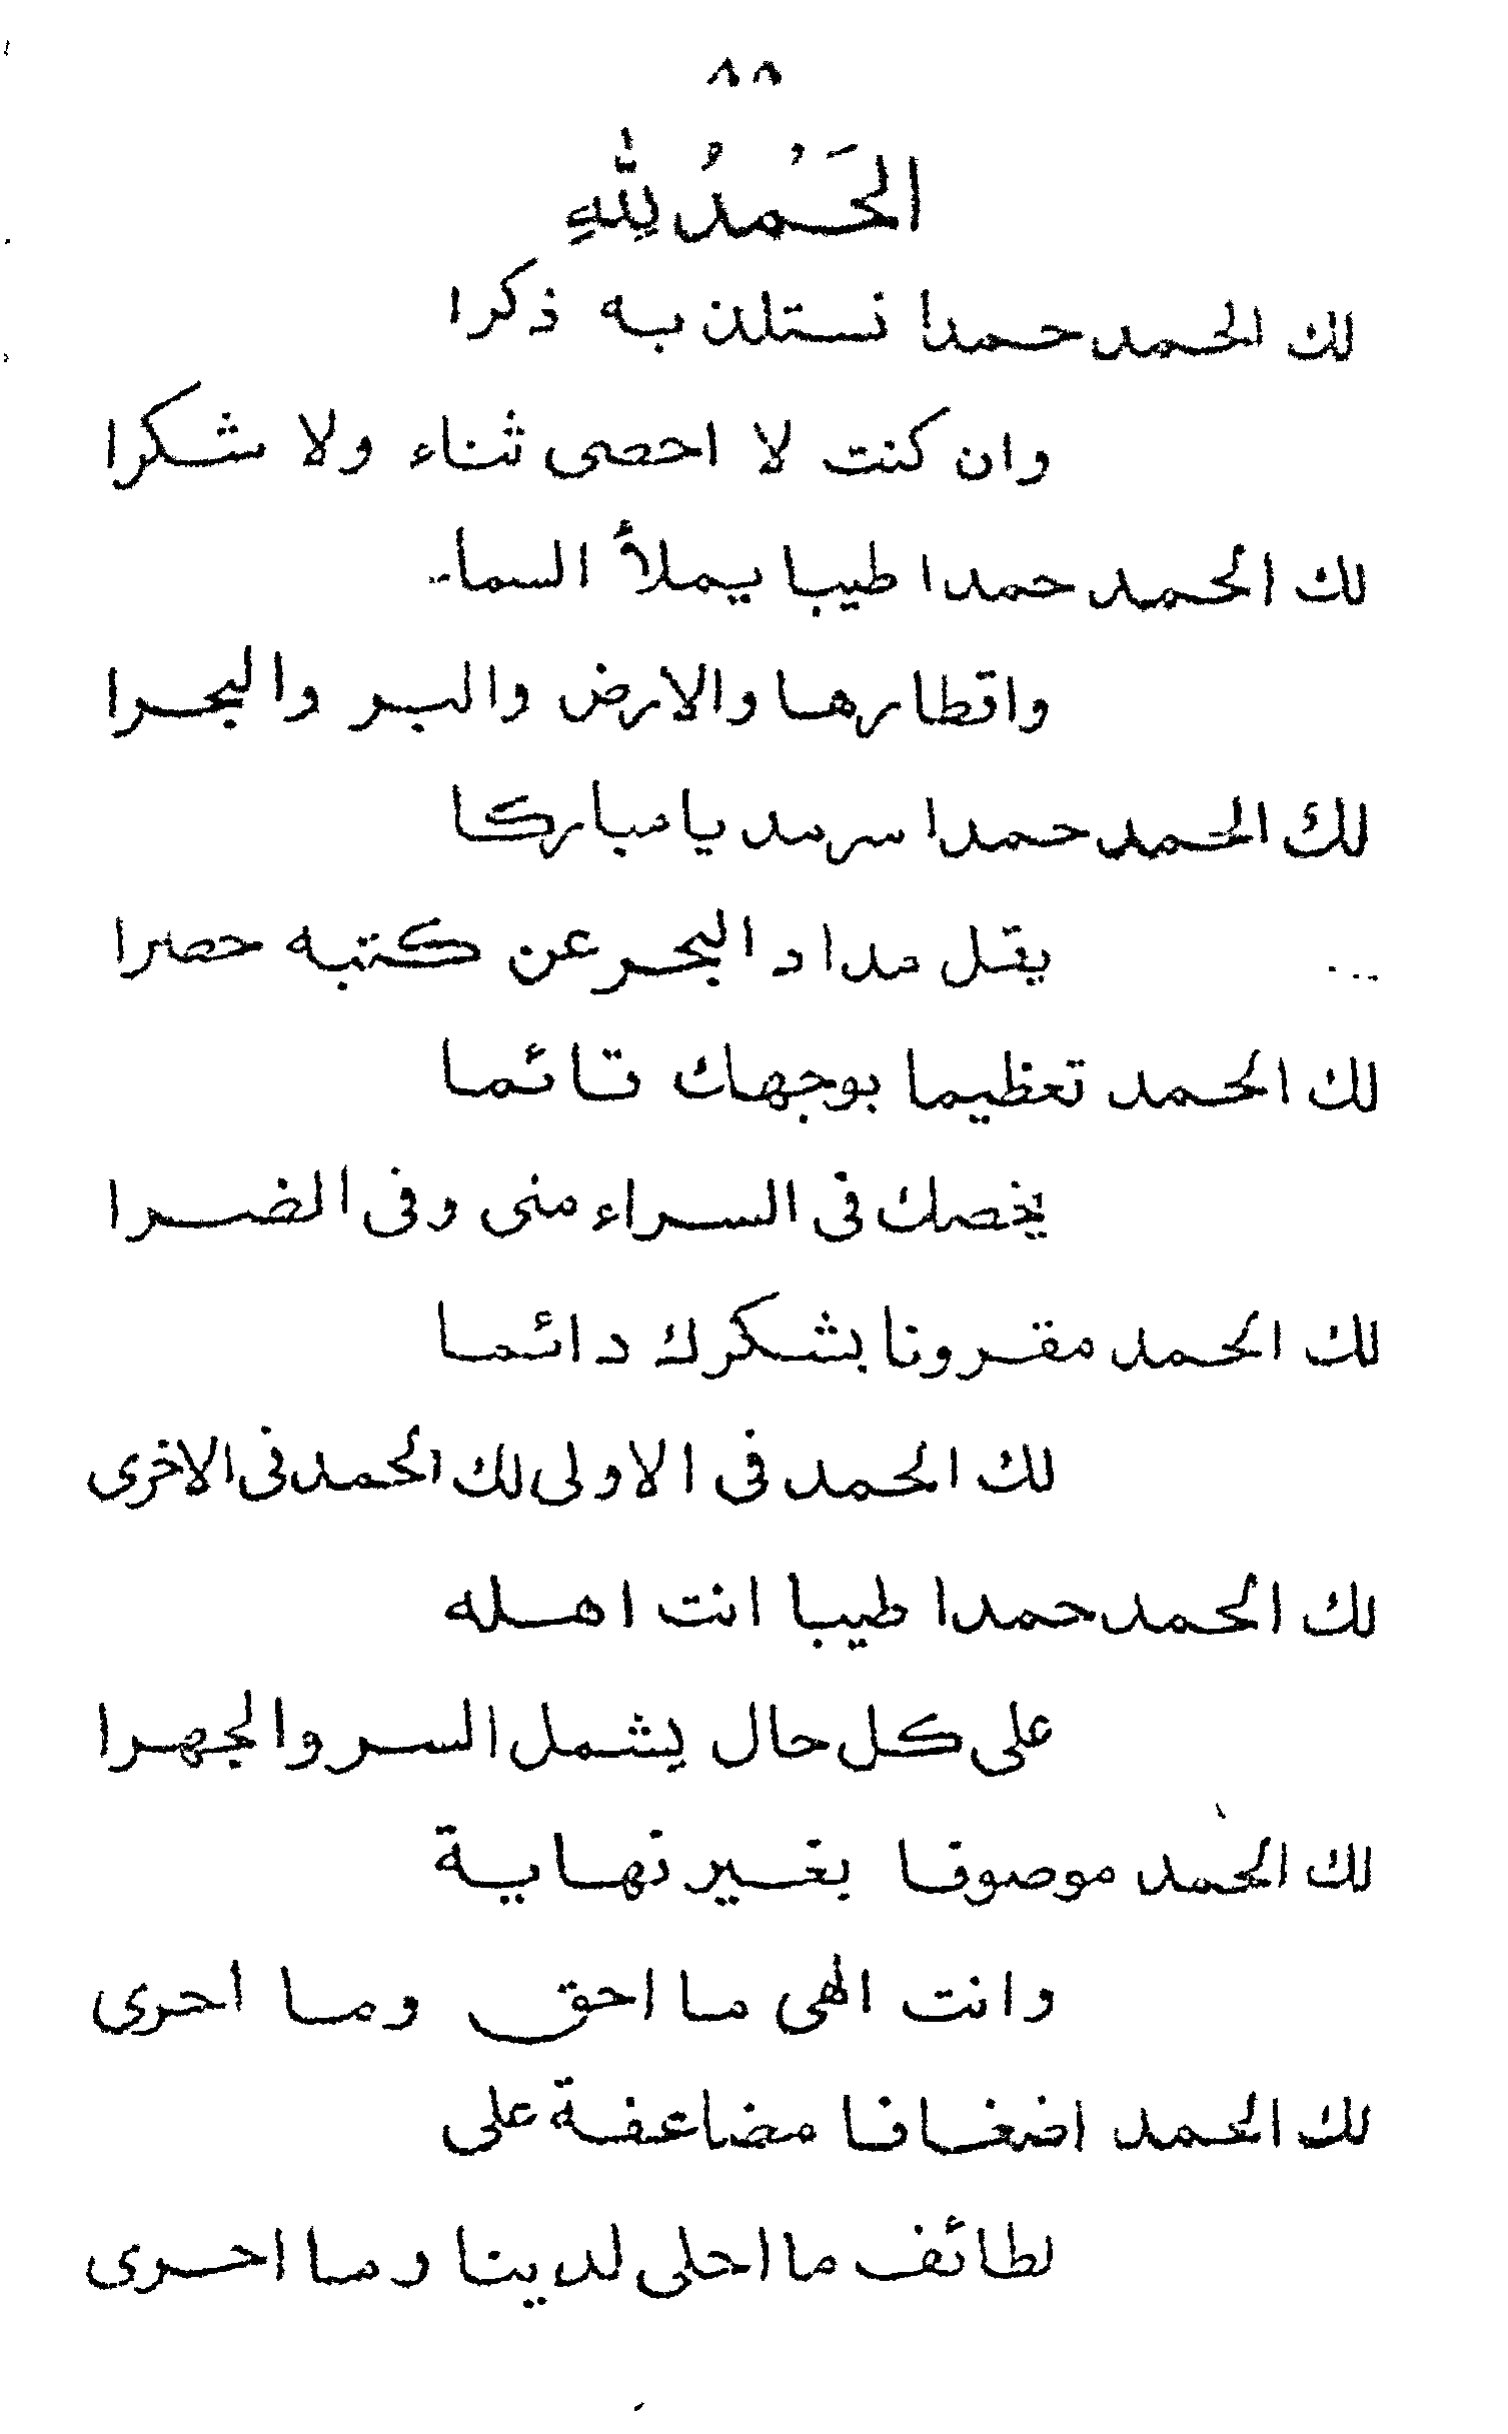 ٨٨
الحَمْدُ لِلّٰهِ
لك الحمد حمدا نستلذ به ذكرا
وان كنت لا احصى ثناء ولا شكرا
لك الحمد حمدا طيبا يملأ السما
واقطارها والارض والبر والبحرا
لك الحمد حمدا سرمديا مباركا
يقل مداد البحر عن كتبه حصرا
لك الحمد تعظيما بوجهك قائما
يخصك فى السراء منى وفى الضرا
لك الحمد مقرونا بشكرك دائما
لك الحمد فى الاولى لك الحمد فى الاخرى
لك الحمد حمدا طيبا انت اهله
على كل حال يشمل السر والجهرا
لك الحمد موصوفا بغير نهاية
وانت الهى ما احق وما احرى
لك الحمد اضغافا مضاعفة على
لطائف ما احلى لدينا وما احرى